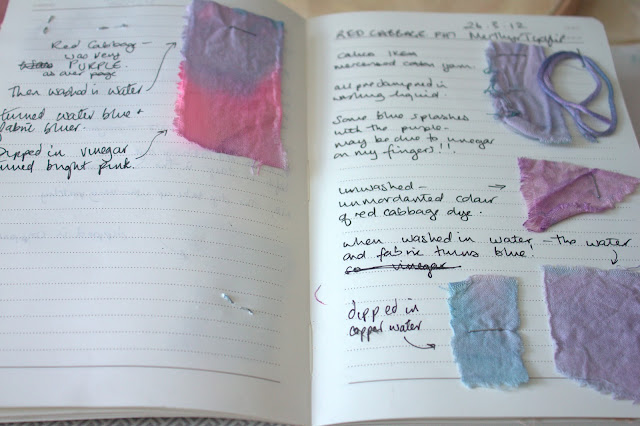 Red Cabbage –
was very
PURPLE.
as over page
Then washed in water
turned water blue &
fabric bluer.
Dipped in vinegar
turned bright pink.
26.8.12
RED CABBAGE Merthyr Tydfil
calico linen
mercerised cotton yarn.
all predamped in
washing liquid.
Some blue splashes
with the purple –
may be due to vinegar
on my fingers!!!
unwashed –
unmordanted colour
of red cabbage dye.
when washed in water – the water
and fabric turns blue!
so vinegar
dipped in
copper water